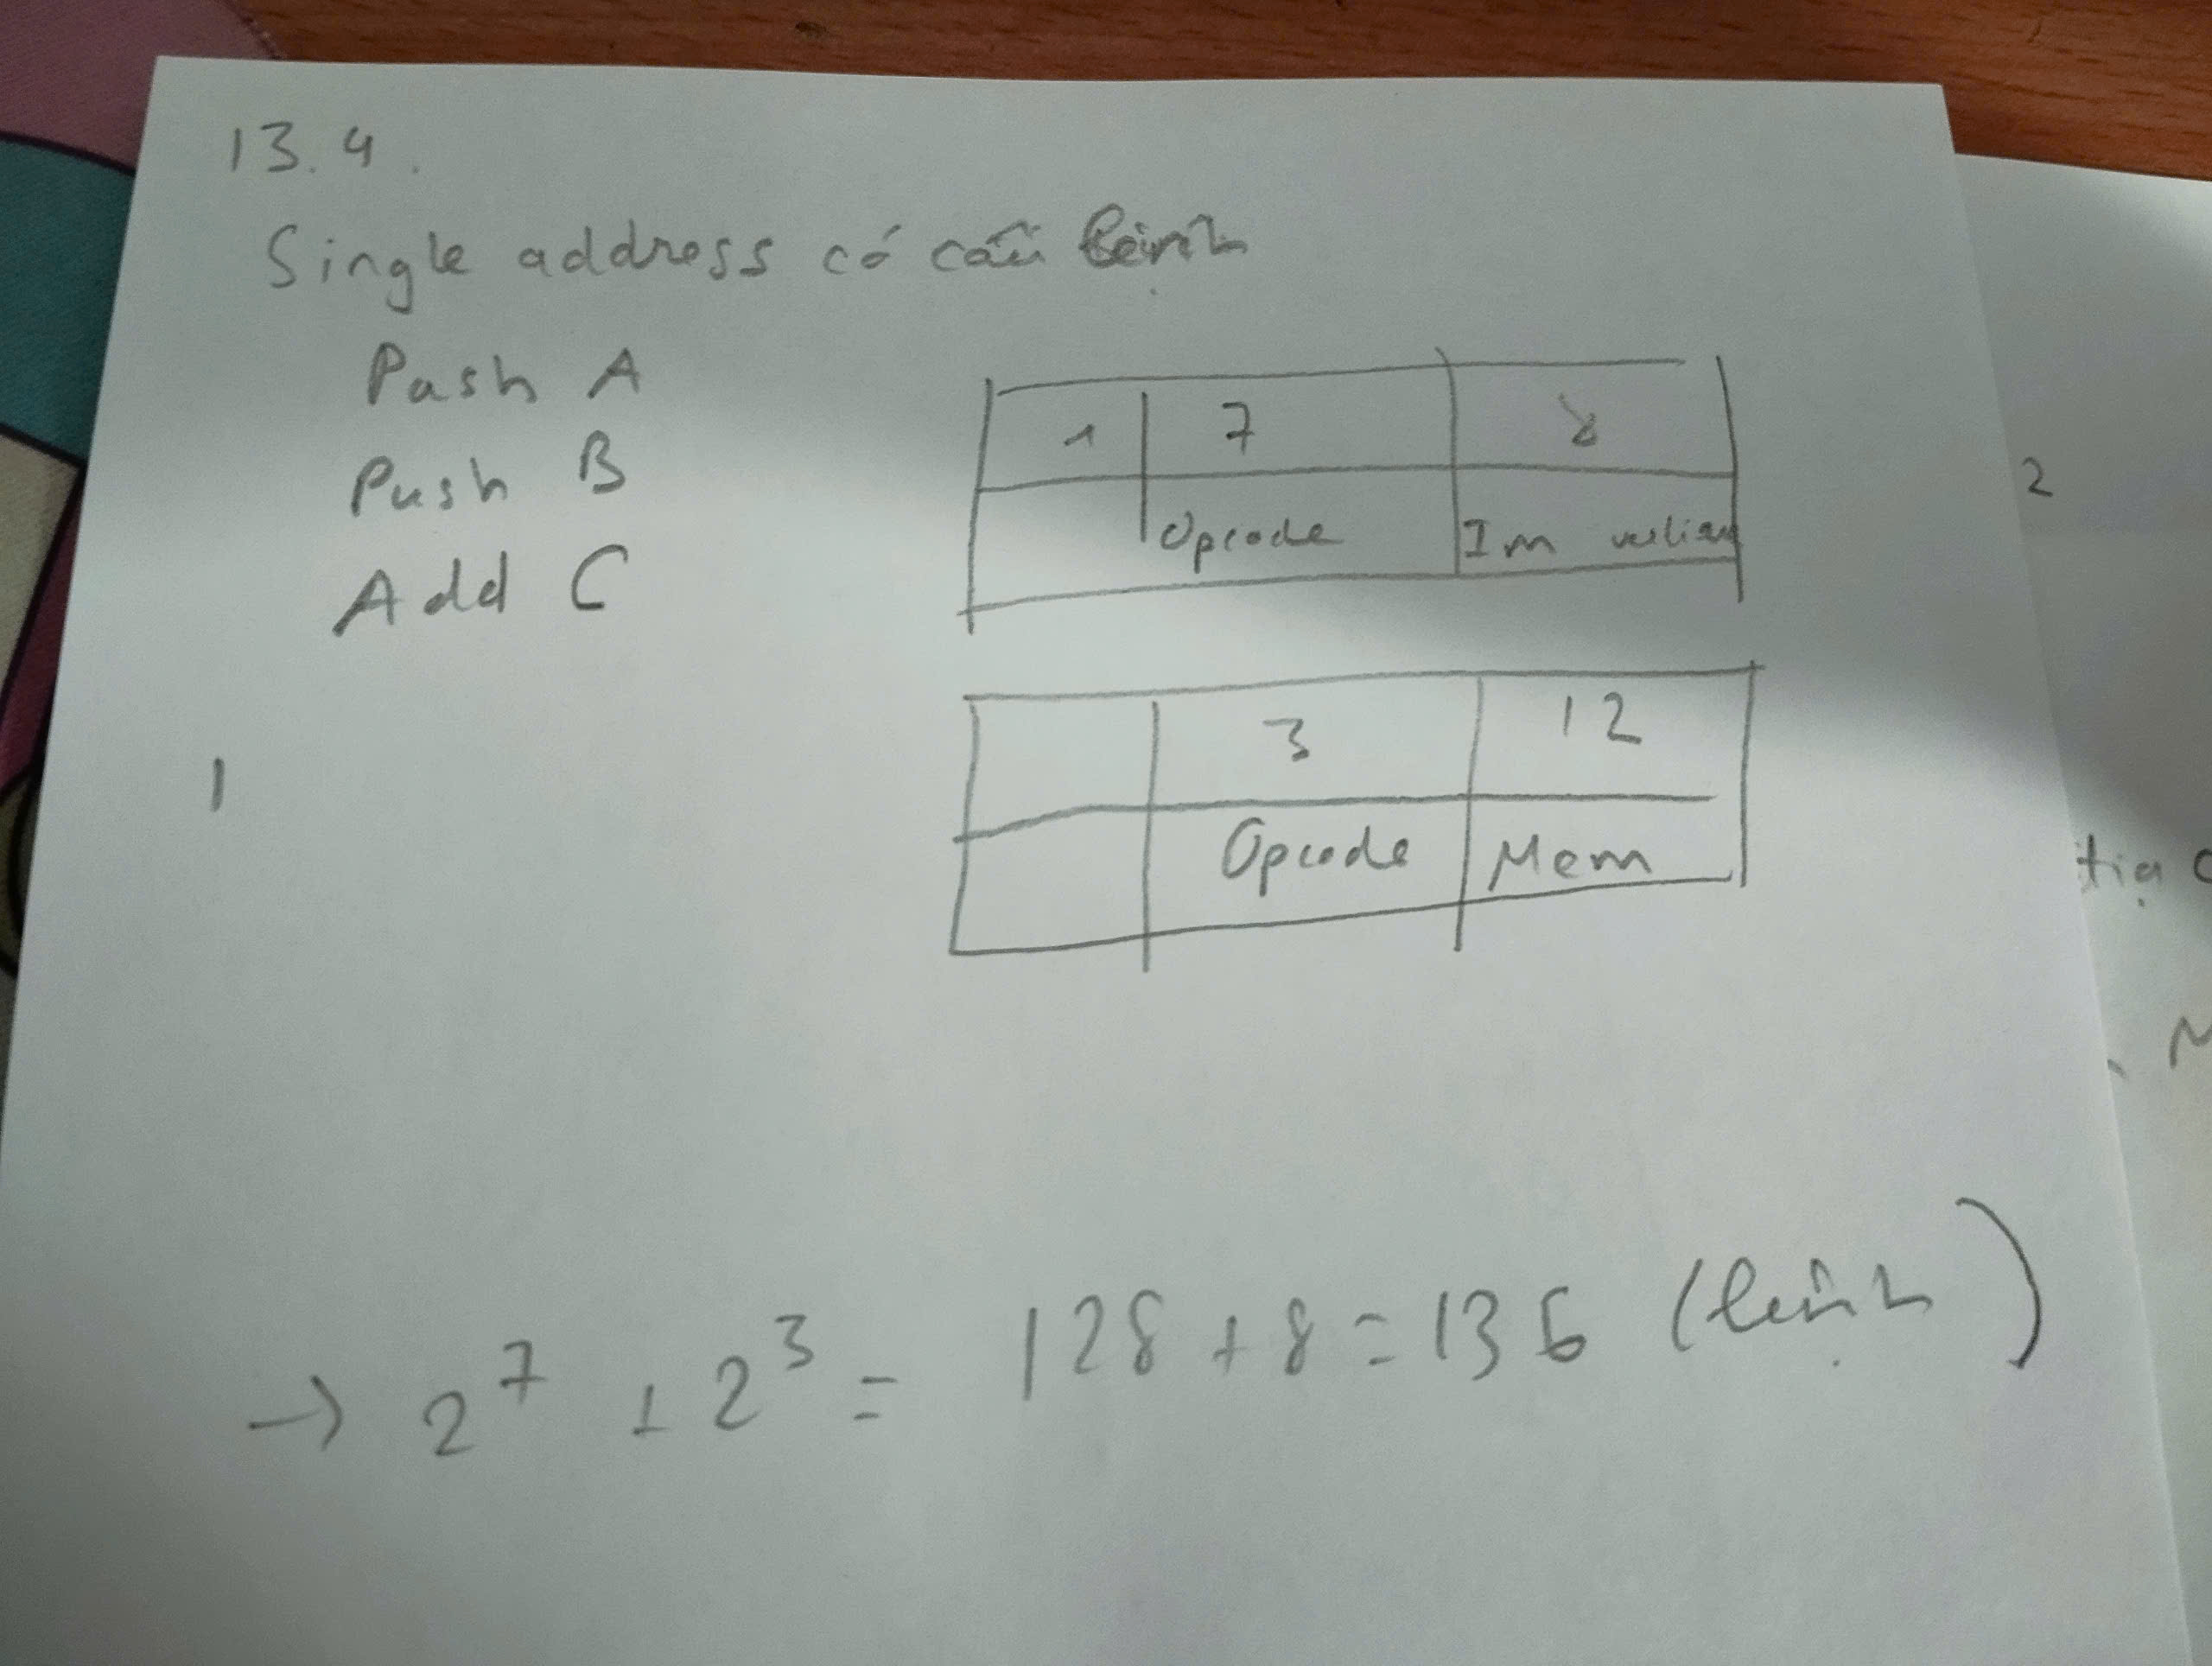 13.4.
Single address có câu lệnh
Push A
Push B
Add C
1 7 8
Opcode Im
3 12
Opcode Mem
1
→ 2^7 + 2^3 = 128 + 8 = 136 (lệnh)
2
tia